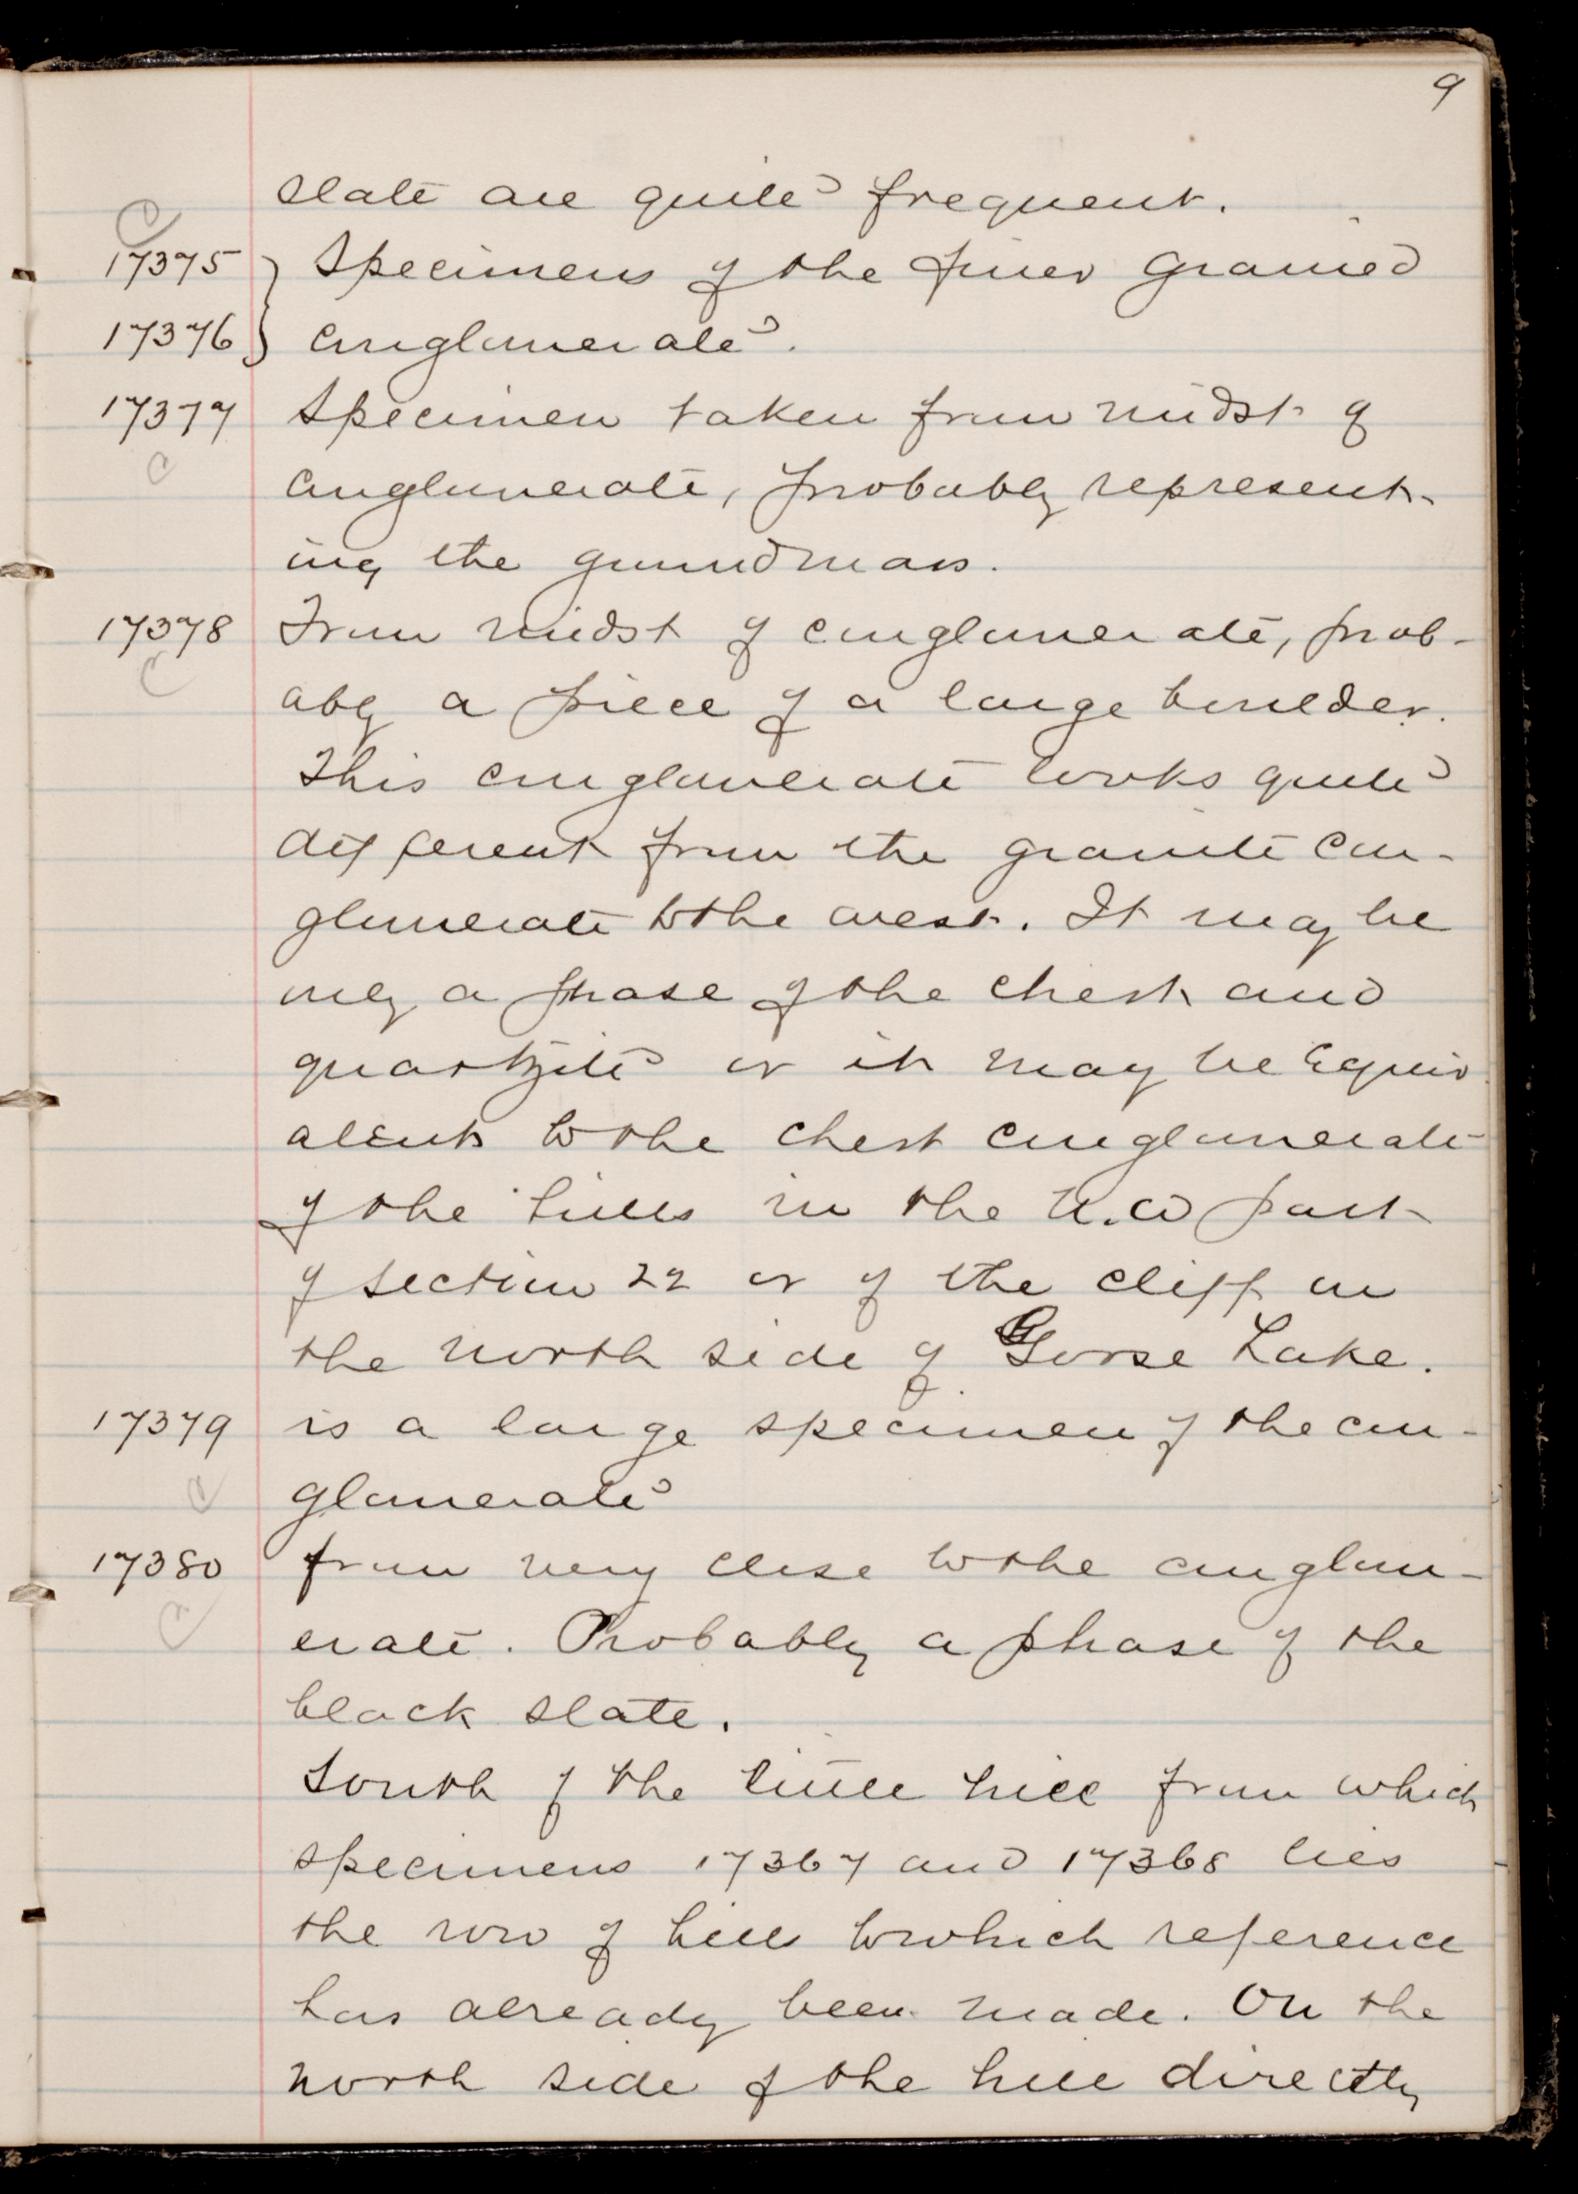 9
slate are quite frequent.
17375 } Specimens of the finer grained
17376 } conglomerate.
17377 Specimen taken from midst of
conglomerate, probably represent-
ing the groundmass.
17378 From midst of conglomerate, prob-
ably a piece of a large boulder.
This conglomerate looks quite
different from the granite con-
glomerate to the west. It may be
only a phase of the chert and
quartzite or it may be equiv
alent to the chert conglomerate
of the hills in the N.W part
of section 22 or of the cliff on
the north side of Goose Lake.
17379 is a large specimen of the con-
glomerate
17380 from very close to the conglom-
erate. Probably a phase of the
black slate.
South of the little hill from which
specimens 17367 and 17368 lies
the row of hills to which reference
has already been made. On the
north side of the hill directly